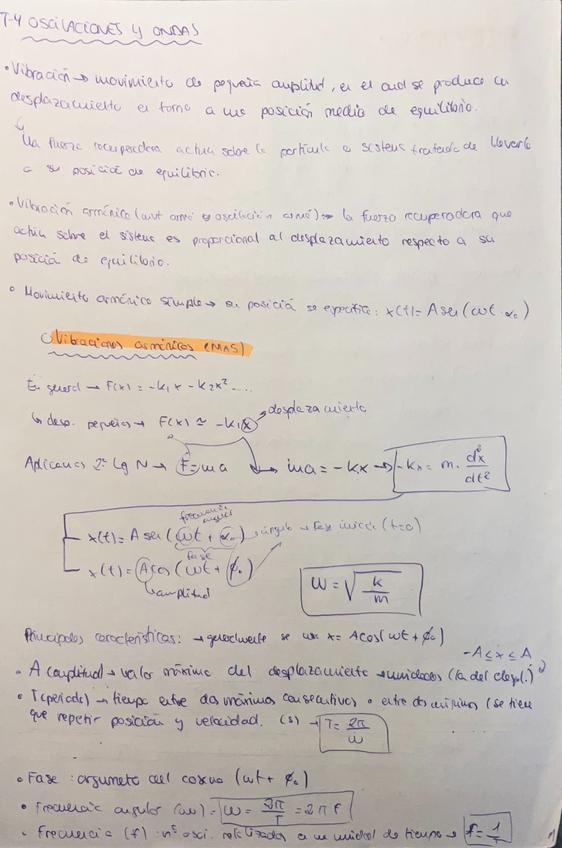 T-4 OSCILACIONES Y ONDAS
• Vibración → movimiento de pequeña amplitud, en el cual se produce un
desplazamiento en torno a una posición media de equilibrio.
Una fuerza recuperadora actúa sobre la partícula o sistema tratando de llevarla
a su posición de equilibrio.
• Vibración armónica (mvt armó o oscilación armó) → la fuerza recuperadora que
actúa sobre el sistema es proporcional al desplazamiento respecto a su
posición de equilibrio.
• Movimiento armónico simple → su posición se especifica: x(t) = A sen (ωt + α₀)
Vibraciones armónicas (MAS)
En general → F(x) = -k₁x - k₂x² ....
↳ desp. pequeños → F(x) ≈ -k₁x → desplazamiento
Aplicamos 2ª Ley N → F = ma → ma = -kx → -kx = m · d²x/dt²
frecuencia angular
x(t) = A sen (ωt + α₀) → ángulo → fase inicial (t=0)
fase
x(t) = A cos (ωt + φ₀)
amplitud
ω = √(k/m)
Principales características: → generalmente se usa x = A cos (ωt + φ₀)
-A ≤ x ≤ A
• A (amplitud) → valor máximo del desplazamiento → unidades (la del despl.)
• T (periodo) → tiempo entre dos máximos consecutivos o entre dos mínimos (se tiene
que repetir posición y velocidad. (s) → T = 2π/ω
• Fase: argumento del coseno (ωt + φ₀)
• Frecuencia angular (ω) = ω = 2π/T = 2πf
• Frecuencia (f): nº osci. realizadas en un unidad de tiempo → f = 1/T